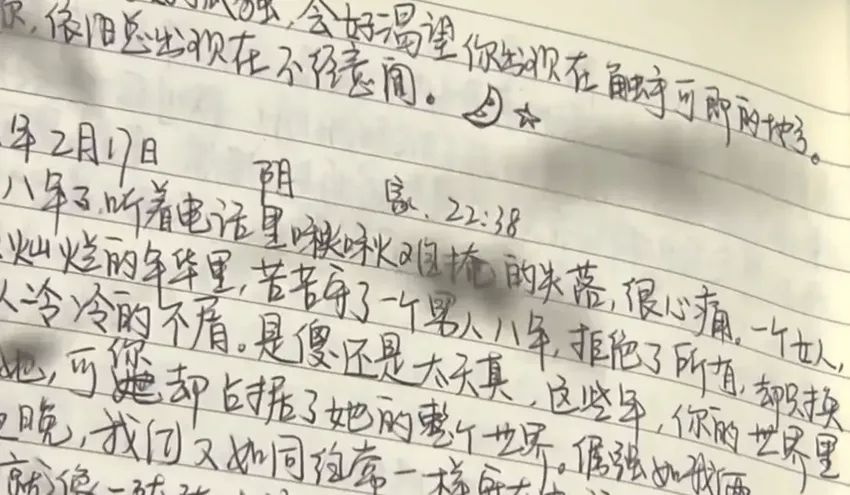 会好渴望你出现在触手可即的地方。
依旧总出现在不经意间。
年2月17日 阴 家. 22:38
八年了,听着电话里啾啾难掩的失落,很心痛。一个女人,
灿烂的年华里,苦苦守了一个男人八年,拒绝了所有,却只换
冷冷的不屑。是傻还是太天真,这些年,你的世界里
她,可你却占据了她的整个世界。倔强如我
晚,我们又如同往常一样